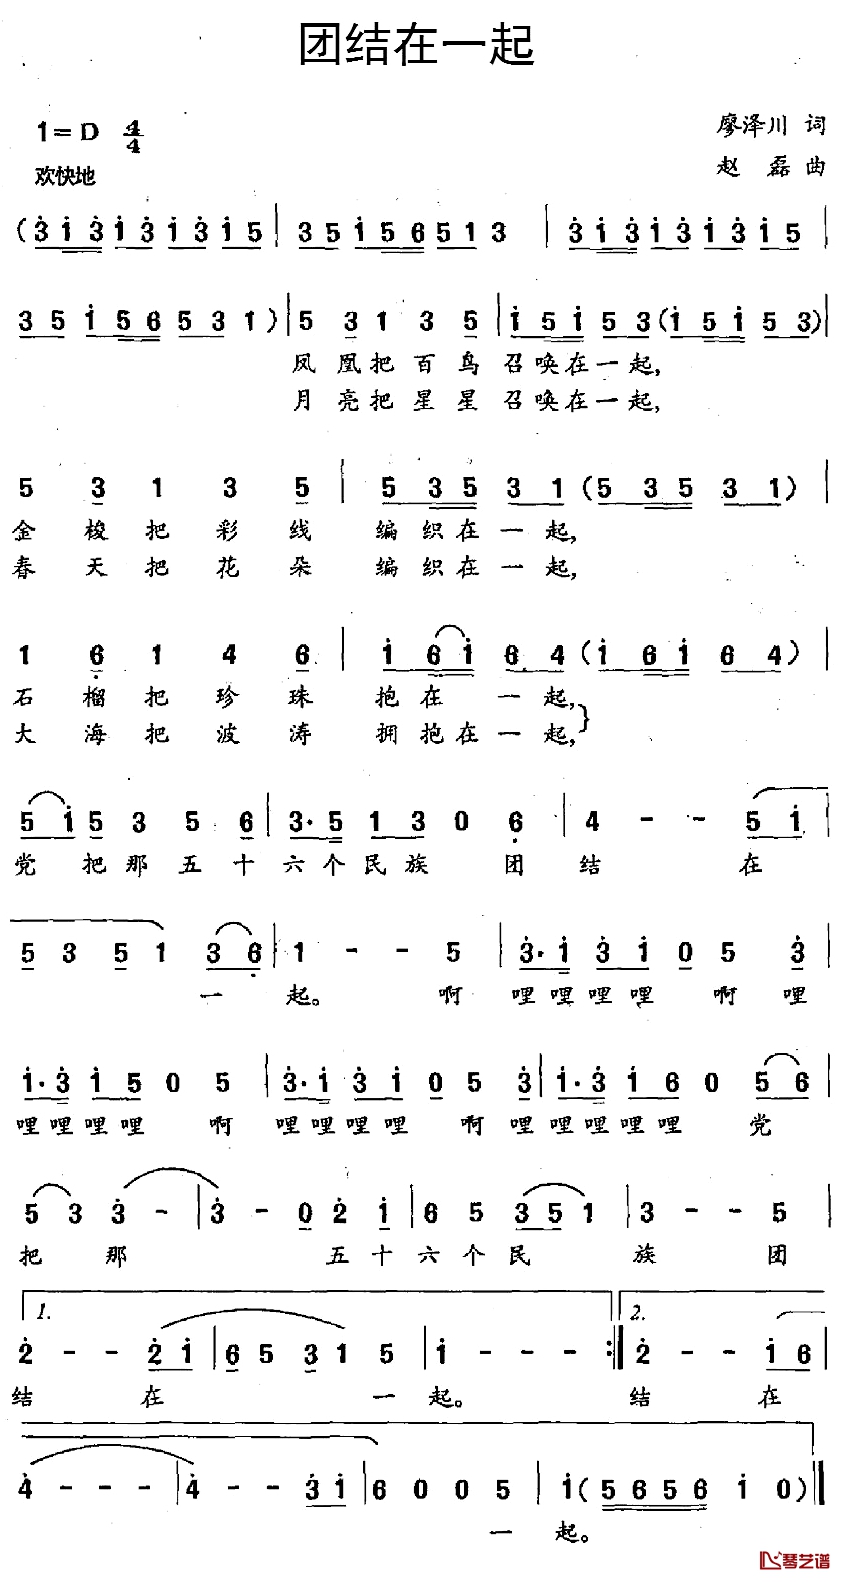 团结在一起
1=D 4/4
廖泽川 词
欢快地
赵磊 曲
(3 1 3 1 3 1 3 1 5 | 3 5 1 5 6 5 1 3 | 3 1 3 1 3 1 3 1 5 |
3 5 1 5 6 5 3 1 ) | 5 3 1 3 5 | 1 5 1 5 3 (1 5 1 5 3) |
凤凰把百鸟召唤在一起,
月亮把星星召唤在一起,
5 3 1 3 5 | 5 3 5 3 1 (5 3 5 3 1) |
金梭把彩线编织在一起,
春天把花朵编织在一起,
1 6 1 4 6 | 1 6 1 6 4 (1 6 1 6 4) |
石榴把珍珠抱在一起,
大海把波涛拥抱在一起,
5 1 5 3 5 6 | 3· 5 1 3 0 6 | 4 - - 5 1 |
党把那五十六个民族团结在
5 3 5 1 3 6 | 1 - - 5 | 3· 1 3 1 0 5 3 |
一起。啊哩哩哩哩啊哩
1· 3 1 5 0 5 | 3· 1 3 1 0 5 3 | 1· 3 1 6 0 5 6 |
哩哩哩哩啊哩哩哩哩啊哩哩哩哩哩党
5 3 3 - | 3 - 0 2 1 | 6 5 3 5 1 | 3 - - 5 |
把那五十六个民族团
1. 2.
2 - - 2 1 | 6 5 3 1 5 | 1 - - - :| 2 - - 1 6 |
结在一起。结在
4 - - - | 4 - - 3 1 | 6 0 0 5 | 1 (5 6 5 6 1 0) ‖
一起。
琴艺谱